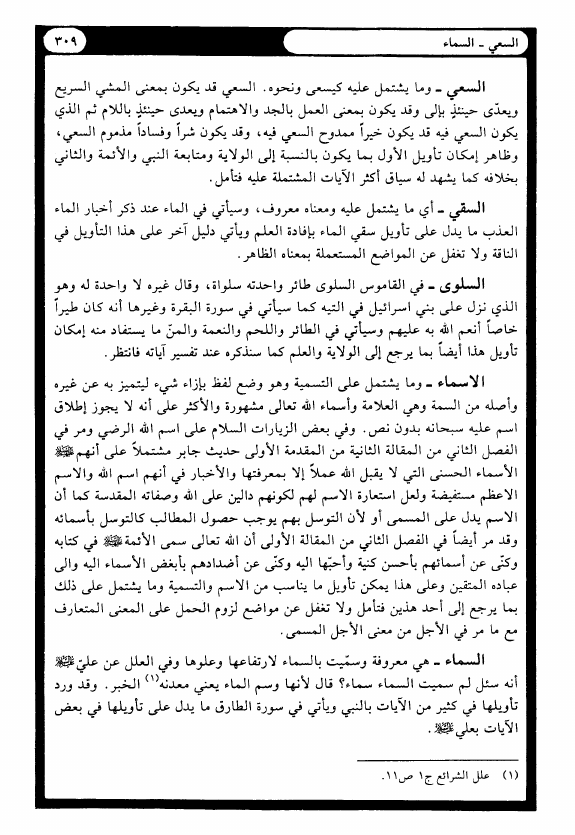 السعي ـ السماء
٣٠٩
السعي ـ وما يشتمل عليه كيسعى ونحوه. السعي قد يكون بمعنى المشي السريع
ويعدّى حينئذٍ بإلى وقد يكون بمعنى العمل بالجد والاهتمام ويعدى حينئذٍ باللام ثم الذي
يكون السعي فيه قد يكون خيراً ممدوح السعي فيه، وقد يكون شراً وفساداً مذموم السعي،
وظاهر إمكان تأويل الأول بما يكون بالنسبة إلى الولاية ومتابعة النبي والأئمة والثاني
بخلافه كما يشهد له سياق أكثر الآيات المشتملة عليه فتأمل.
السقي ـ أي ما يشتمل عليه ومعناه معروف، وسيأتي في الماء عند ذكر أخبار الماء
العذب ما يدل على تأويل سقي الماء بإفادة العلم ويأتي دليل آخر على هذا التأويل في
الناقة ولا تغفل عن المواضع المستعملة بمعناه الظاهر.
السلوى ـ في القاموس السلوى طائر واحدته سلواة، وقال غيره لا واحدة له وهو
الذي نزل على بني اسرائيل في التيه كما سيأتي في سورة البقرة وغيرها أنه كان طيراً
خاصاً أنعم الله به عليهم وسيأتي في الطائر واللحم والنعمة والمنّ ما يستفاد منه إمكان
تأويل هذا أيضاً بما يرجع إلى الولاية والعلم كما سنذكره عند تفسير آياته فانتظر.
الاسماء ـ وما يشتمل على التسمية وهو وضع لفظ بإزاء شيء ليتميز به عن غيره
وأصله من السمة وهي العلامة وأسماء الله تعالى مشهورة والأكثر على أنه لا يجوز إطلاق
اسم عليه سبحانه بدون نص. وفي بعض الزيارات السلام على اسم الله الرضي ومر في
الفصل الثاني من المقالة الثانية من المقدمة الأولى حديث جابر مشتملاً على أنهم
الأسماء الحسنى التي لا يقبل الله عملاً إلا بمعرفتها والأخبار في أنهم اسم الله والاسم
الاعظم مستفيضة ولعل استعارة الاسم لهم لكونهم دالين على الله وصفاته المقدسة كما أن
الاسم يدل على المسمى أو لأن التوسل بهم يوجب حصول المطالب كالتوسل بأسمائه
وقد مر أيضاً في الفصل الثاني من المقالة الأولى أن الله تعالى سمى الأئمة في كتابه
وكنّى عن أسمائهم بأحسن كنية وأحبّها اليه وكنّى عن أضدادهم بأبغض الأسماء اليه والى
عباده المتقين وعلى هذا يمكن تأويل ما يناسب من الاسم والتسمية وما يشتمل على ذلك
بما يرجع إلى أحد هذين فتأمل ولا تغفل عن مواضع لزوم الحمل على المعنى المتعارف
مع ما مر في الأجل من معنى الأجل المسمى.
السماء ـ هي معروفة وسمّيت بالسماء لارتفاعها وعلوها وفي العلل عن عليّ
أنه سئل لم سميت السماء سماء؟ قال لأنها وسم الماء يعني معدنه(١) الخبر. وقد ورد
تأويلها في كثير من الآيات بالنبي ويأتي في سورة الطارق ما يدل على تأويلها في بعض
الآيات بعلي.
(١) علل الشرائع ج١ ص١١.